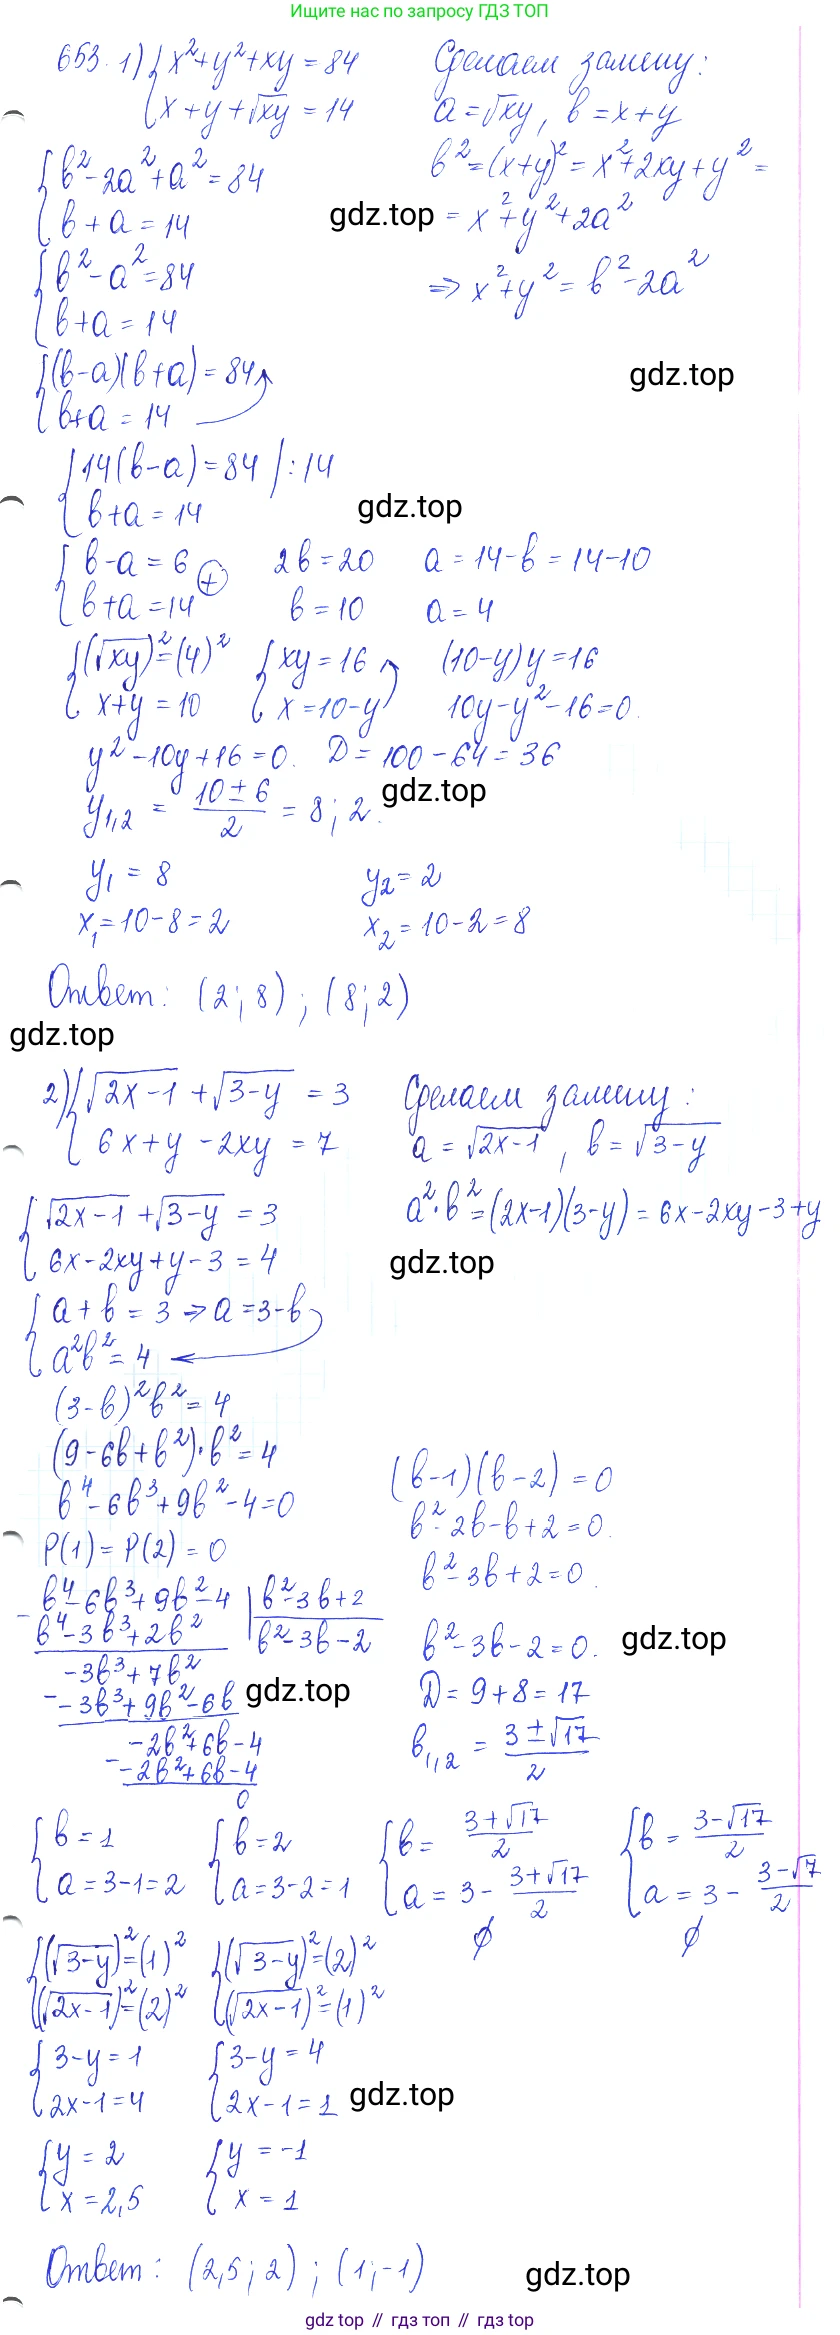 Ищи нас по запросу ГДЗ ТОП
653. 1) { x² + y² + xy = 84
{ x + y + √xy = 14
Сделаем замену:
a = √xy, b = x + y
b² = (x+y)² = x² + 2xy + y² =
= x² + y² + 2a²
⇒ x² + y² = b² - 2a²
{ b² - 2a² + a² = 84
{ b + a = 14
gdz.top
{ b² - a² = 84
{ b + a = 14
{ (b-a)(b+a) = 84
{ b+a = 14
gdz.top
{ 14(b-a) = 84 / :14
{ b+a = 14
gdz.top
{ b-a = 6 ⊕ 2b = 20 a = 14-b = 14-10
{ b+a = 14 b = 10 a = 4
{ (√xy)² = (4)² { xy = 16 (10-y)y = 16
{ x+y = 10 { x = 10-y 10y - y² - 16 = 0.
y² - 10y + 16 = 0. D = 100 - 64 = 36
y₁,₂ = (10 ± 6)/2 = 8; 2.
gdz.top
y₁ = 8 y₂ = 2
x₁ = 10-8 = 2 x₂ = 10-2 = 8
Ответ: (2; 8); (8; 2)
gdz.top
2) { √2x-1 + √3-y = 3
{ 6x + y - 2xy = 7
Сделаем замену:
a = √2x-1, b = √3-y
a²·b² = (2x-1)(3-y) = 6x-2xy-3+y
{ √2x-1 + √3-y = 3
{ 6x - 2xy + y - 3 = 4
gdz.top
{ a + b = 3 ⇒ a = 3-b
{ a²b² = 4
(3-b)²b² = 4
(9-6b+b²)·b² = 4
b⁴ - 6b³ + 9b² - 4 = 0
P(1) = P(2) = 0
(b-1)(b-2) = 0
b² - 2b - b + 2 = 0.
b² - 3b + 2 = 0.
- b⁴ - 6b³ + 9b² - 4 | b² - 3b + 2
b⁴ - 3b³ + 2b² | b² - 3b - 2
-3b³ + 7b²
- -3b³ + 9b² - 6b
gdz.top
-2b² + 6b - 4
- -2b² + 6b - 4
0
b² - 3b - 2 = 0.
gdz.top
D = 9 + 8 = 17
b₁,₂ = (3 ± √17)/2
{ b = 1 { b = 2 { b = (3+√17)/2 { b = (3-√17)/2
{ a = 3-1 = 2 { a = 3-2 = 1 { a = 3 - (3+√17)/2 { a = 3 - (3-√7)/2
∅ ∅
{ (√3-y)² = (1)² { (√3-y)² = (2)²
{ (√2x-1)² = (2)² { (√2x-1)² = (1)²
{ 3-y = 1 { 3-y = 4
{ 2x-1 = 4 { 2x-1 = 1
gdz.top
{ y = 2 { y = -1
{ x = 2,5 { x = 1
Ответ: (2,5; 2); (1; -1)
gdz.top
gdz top // гдз топ // гдз top